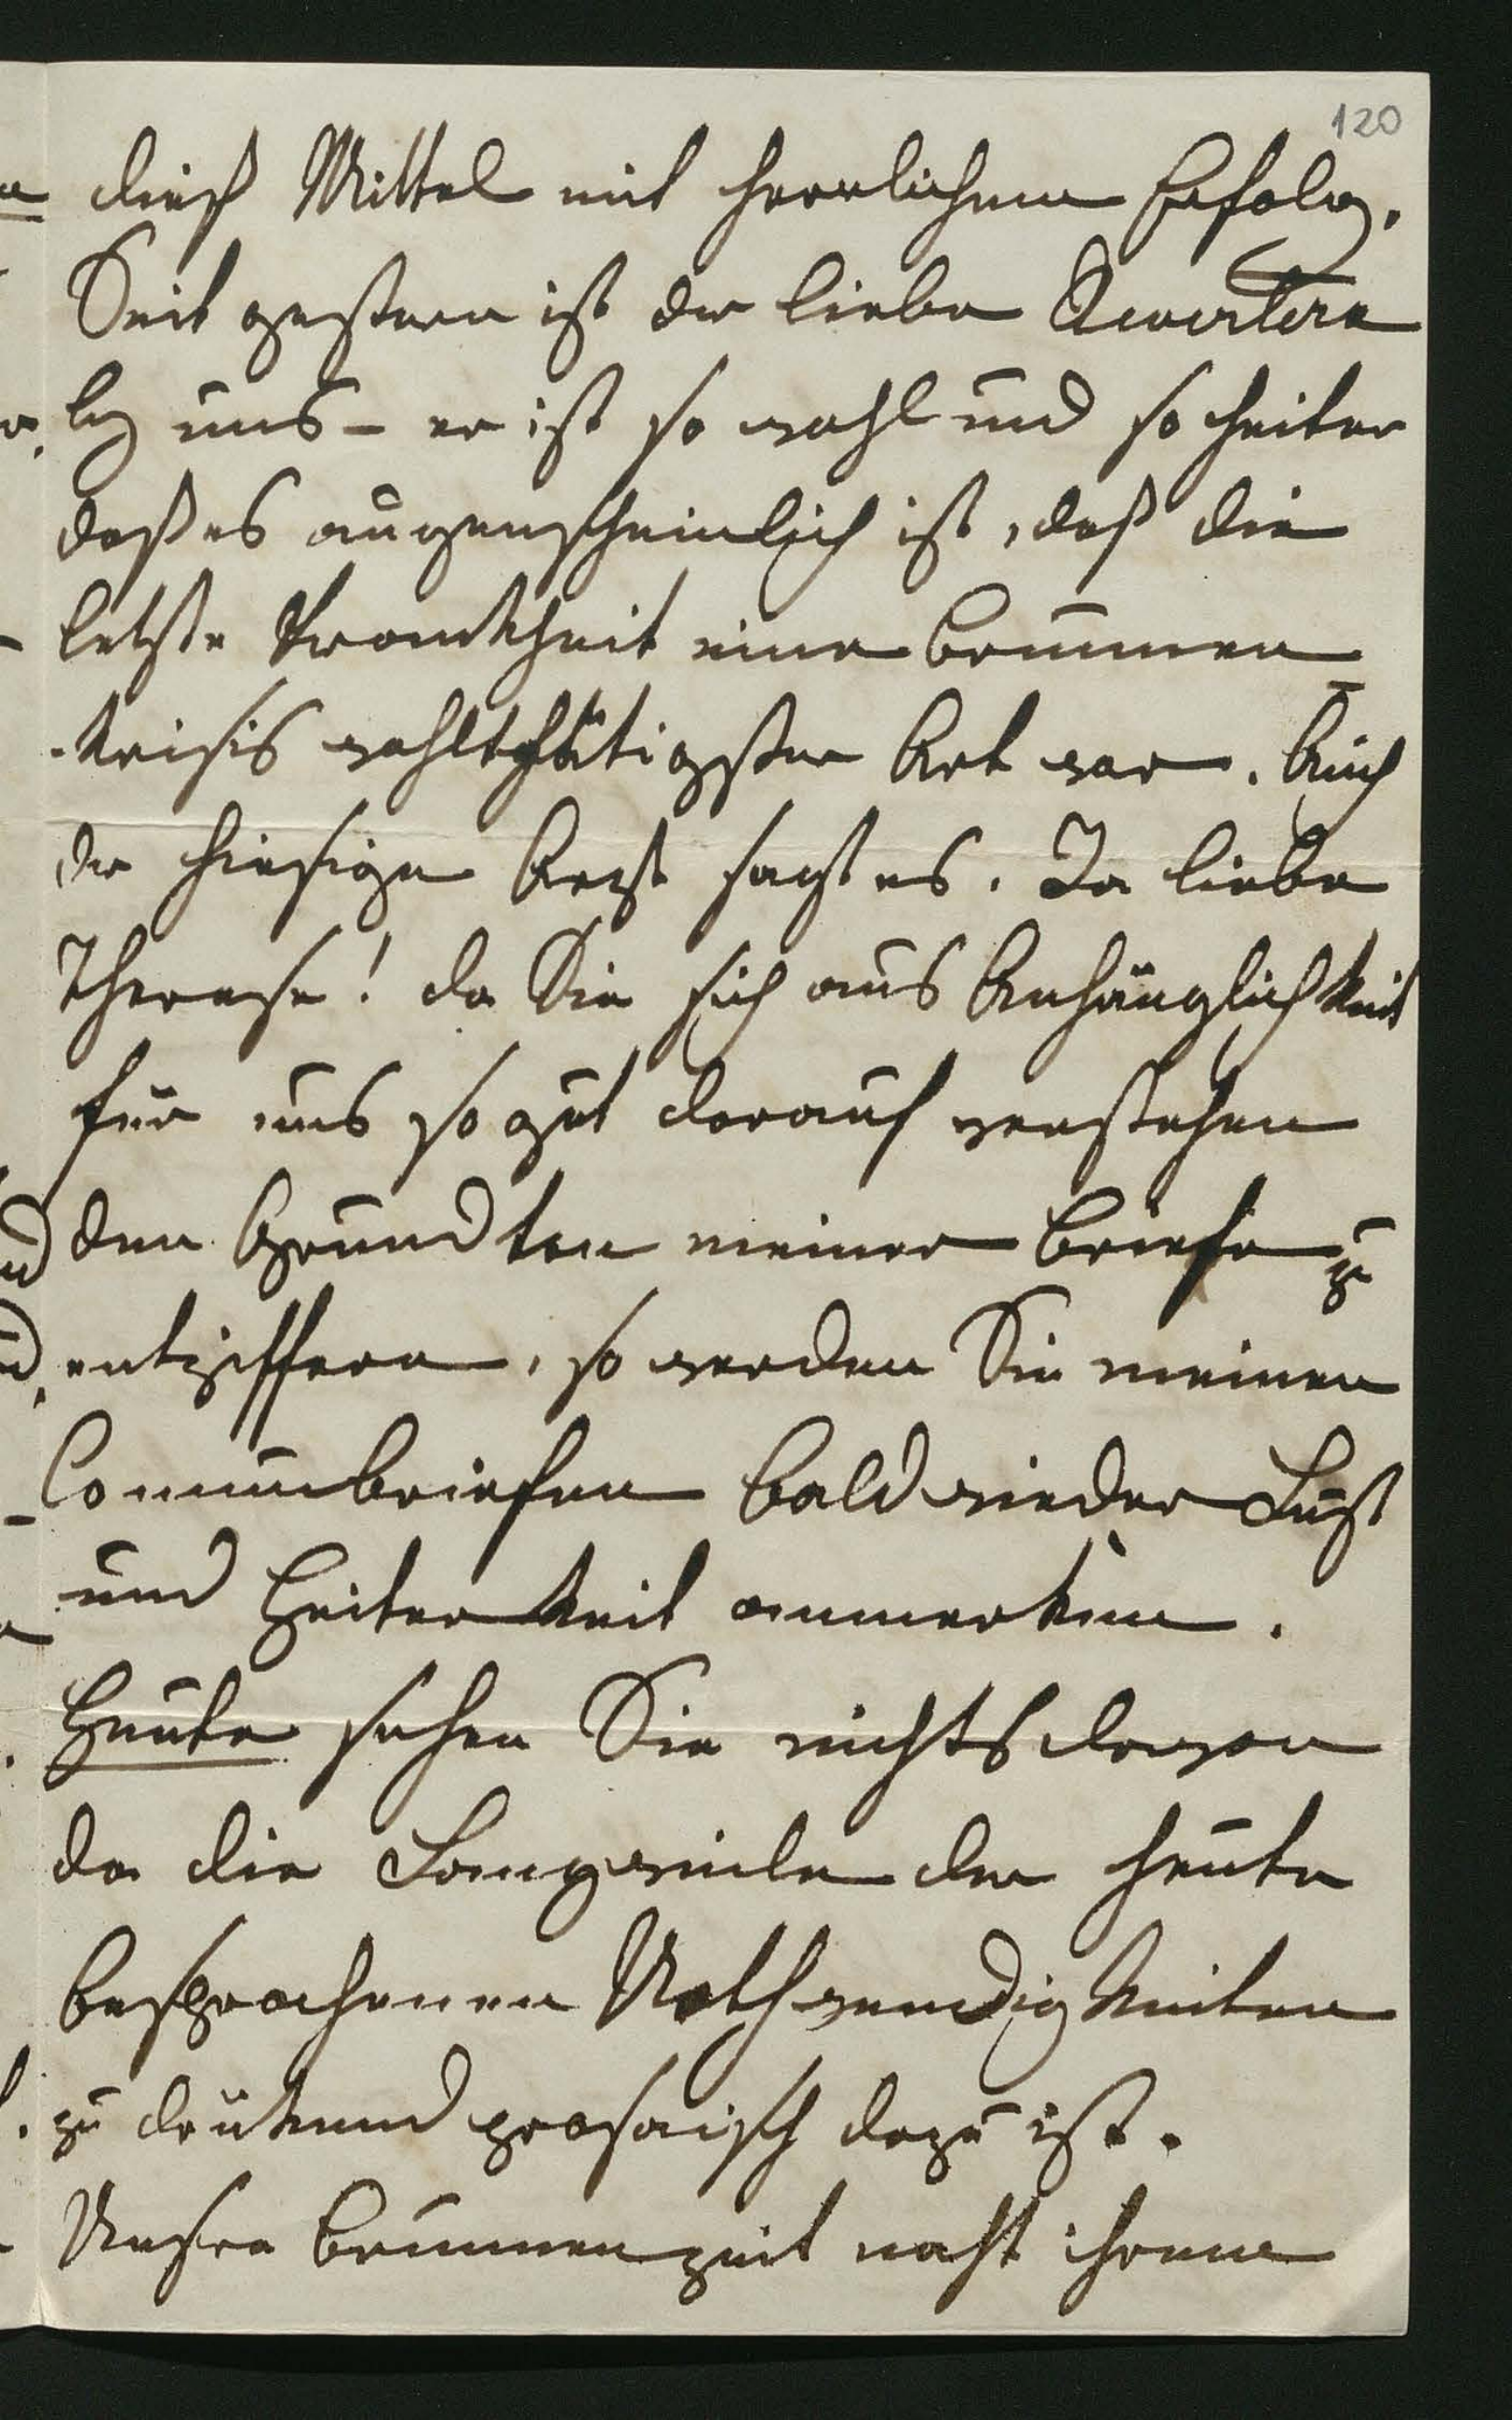 120
dieß Mittel mit herrlichem Erfolg.
Seit gestern ist der liebe
bey uns – er ist so wohl und so heiter
daß es augenscheinlich ist, daß die
letzte Krankheit eine Brunnen
-krisis wohlthätigster Art war. Auch
der hiesige Arzt sagt es. Ja liebe
Therese! da Sie sich aus Anhänglichkeit
für uns so gut darauf verstehen
den Grundton meiner Briefe zu
entziffern, so werden Sie meinen
Brunnenbriefen bald wieder Lust
und Heiterkeit anmerken.
Heute sehen Sie nichts davon
da die Langweile der heute
besprochenen Nothwendigkeiten
zu drükend prosaisch dazu ist.
Unsre Brunnenzeit naht ihrem